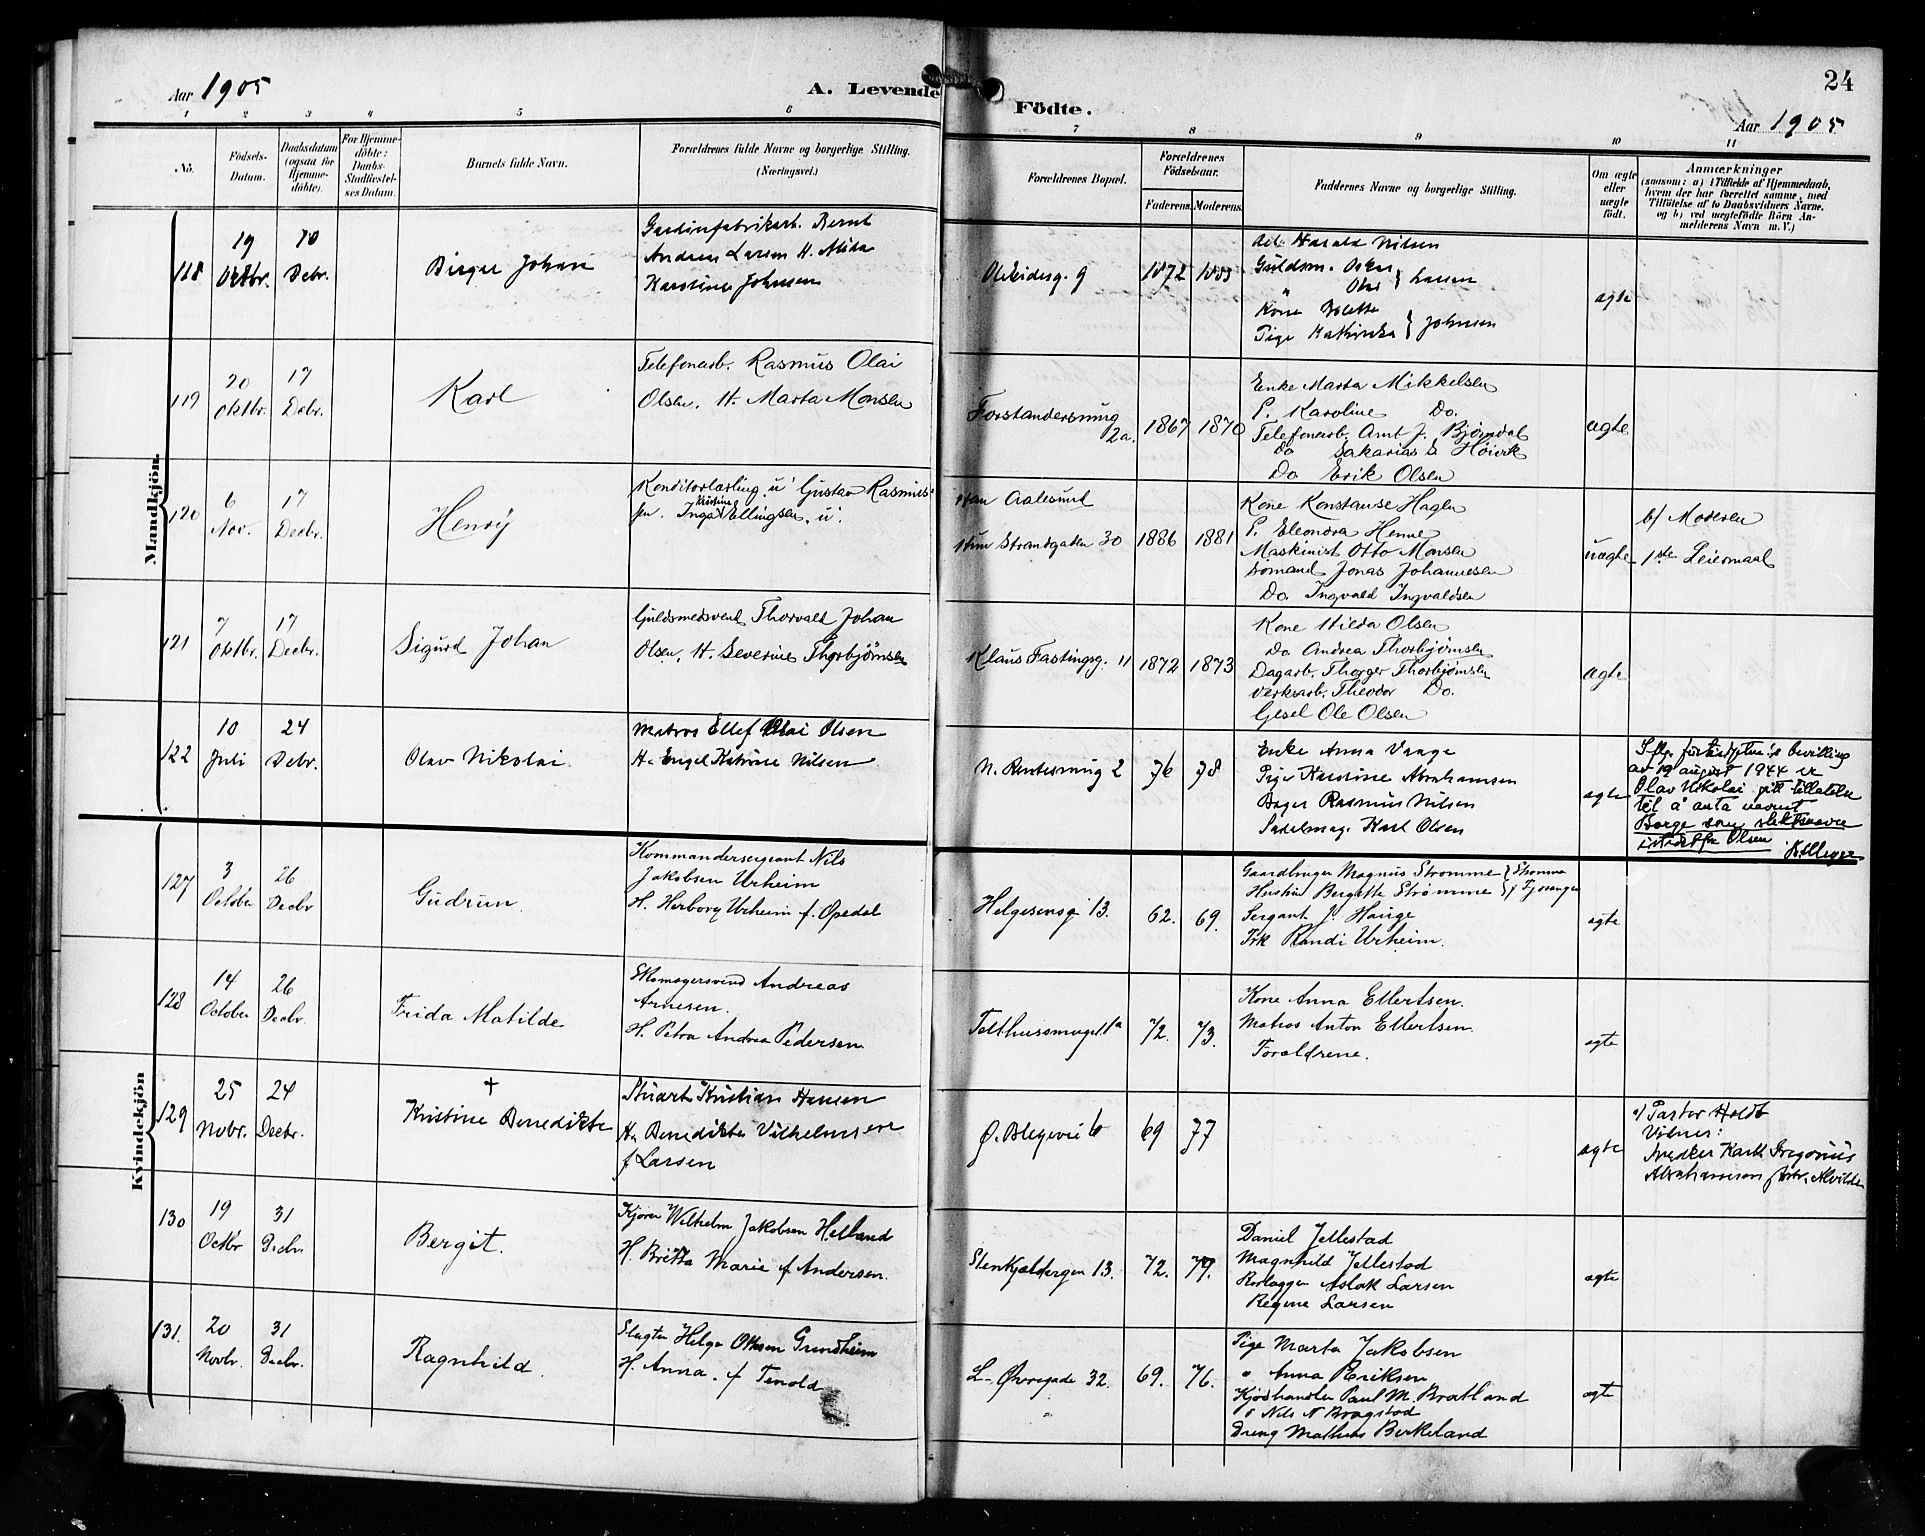 Aar 1905
A. Levende Födte.
24
Aar 1905
1 2 3 4 5 6 7 8 9 10 11
No.
Födsels-Datum.
Daabsdatum (ogsaa for Hjemmedöbte).
For Hjemmedöbte: Daabs-Stadfæstelses Datum.
Barnets fulde Navn.
Forældrenes fulde Navne og borgerlige Stilling.
(Næringsvei.)
Forældrenes Bopæl.
Forældrenes Födselsaar.
Faderens. Moderens.
Faddernes Navne og borgerlige Stilling.
Om ægte eller uægte födt.
Anmærkninger
(saasom: a) i Tilfælde af Hjemmedaab,
hvem der har forrettet samme, med
Tilföielse af to Daabsvidners Navne.
og b) ved uægtefödte Börn Anmelderens Navn m. V.)
Mandkjön.
118
19 Oktbr.
10 Debr.
Birger Johan
Gardinfabrikarb. Bernt
Andreas Larsen H. Alida
Karoline Johnsen
9
1872
Arb. Harald Nilsen
Guldsm. Oskar
Olaf } Larsen
Kone Bolette
Pige Kathinka } Johnsen
ægte
119
20 Oktbr.
17 Debr.
Karl
Telefonarb. Rasmus Olai
Olsen, H. Marta Monsen
Forstandersmug
2a.
1867 1870
Enke Marta Mikkelsen
P. Karoline Do.
Telefonarb. Arnt J. Bjørndal
Do Sakarias S. Høivik
Do Erik Olsen
ægte
120
6 Nov.
17 Decbr.
Henry
Konditorlærling u' Gustav Rasmus-
sen. Inga Kristine Ellingsen, u'.
Han Aalesund
Hun Strandgaden 30
1886 1881
Kone Konstanse Hagen
P. Eleonora Henne
Maskinist Otto Monsen
Sømand Jonas Johannesen
Do Ingvald Ingvaldsen
uægte
b/ Moderen
1ste Leiermaal
121
7 Oktbr.
17 Decbr.
Sigurd Johan
Guldsmedsvend Thorvald Johan
Olsen, H. Severine Thorbjørnsen
Klaus Fastingsg. 11
1872 1873
Kone Hilda Olsen
Do Andrea Thorbjørnsen
Dagarb. Thorger Thorbjørnsen
Verksarb. Theodor Do.
Gesel Ole Olsen
ægte
122
10 Juli
24 Debr.
Olav Nikolai.
Matros Ellef Olai Olsen
H. Engel Katrine Nilsen
2
76 78
Enke Anna Vaage
Pige Karoline Abrahamsen
Bager Rasmus Nilsen
Sadelmag. Karl Olsen
ægte
Ifl. justisdptm's bevilling
av 19 august 1944 er
Olav Nikolai gitt tillatelse
til å anta navnet
Borge som slektsnavn
istedetfor Olsen
Kvindekjön
127
3 October
26 Decbr
Gudrun.
Kommandersergeant Nils
Jakobsen Urheim
H. Herborg Urheim f. Opedal
Helgesensg 13.
62. 69.
Gaardbruger Magnus Strømme
Hustru Bergitte Strømme } Strømme i Fjøsanger
Sergant J. Hauge
Frk Randi Urheim.
ægte
128
14 October
26 Decbr.
Frida Matilde
Skomagersvend Andreas
Arnesen.
H. Petra Andrea Pedersen
Telthussmuget 1a
72. 73.
Kone Anna Ellertsen.
Matros Anton Ellertsen
Forældrene.
ægte
129
25 Nobr.
24 Decbr.
†
Kristine Benedikte
Stuart Kristian Hansen
H. Benedikte Vilhelmsen
f Larsen
Ø. Blegevei 6
69 77
ægte
a/ Pastor Holdt
Vidner:
Snedker Karl Gregorius
Abrahamsen Alvilde
130
19 Octbr
31 Decbr.
Bergit.
Kjører Wilhelm Jakobsen Helland
H. Britta Marie f Andersen.
Stenkjeldergen 13.
72. 79.
Daniel Jellestad
Magnhild Jellestad
Rørlægger Aslak Larsen
Regine Larsen
ægte
131.
20 Novbr.
31 Decbr.
Ragnhild.
Slagter Helge Ottesen Grindheim
H. Anna. f Tenold
L. Øvregade 32.
69. 76.
Pige Marta Jakobsen
" Anna Eriksen
Kjødhandler Paul M. Bratland
" Nils N Bragstad
Dreng Mathias Birkeland
ægte